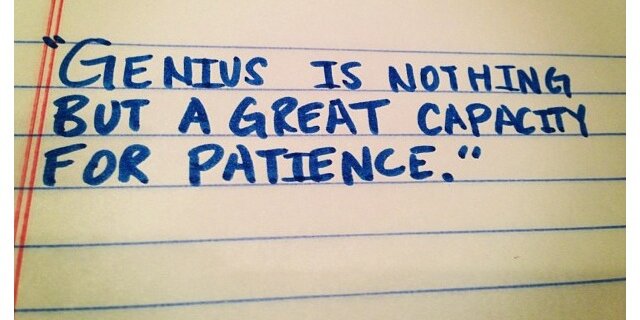 "GENIUS IS NOTHING
BUT A GREAT CAPACITY
FOR PATIENCE."